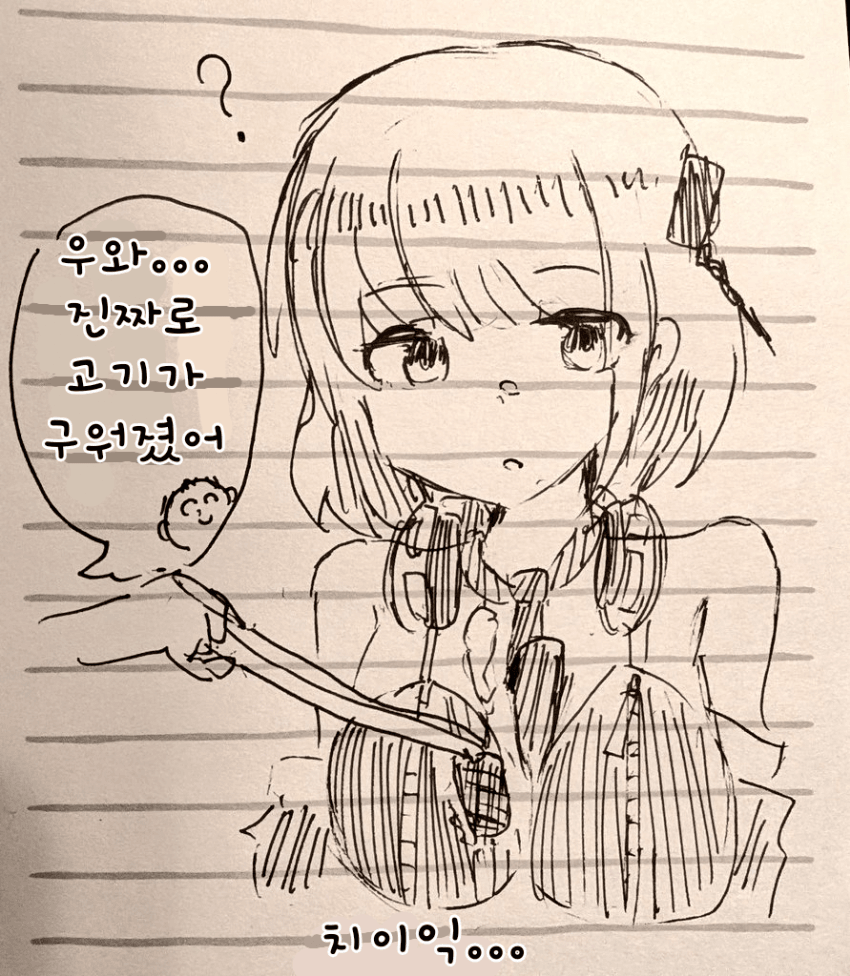 ?
우와...
진짜로
고기가
구워졌어
치이익...